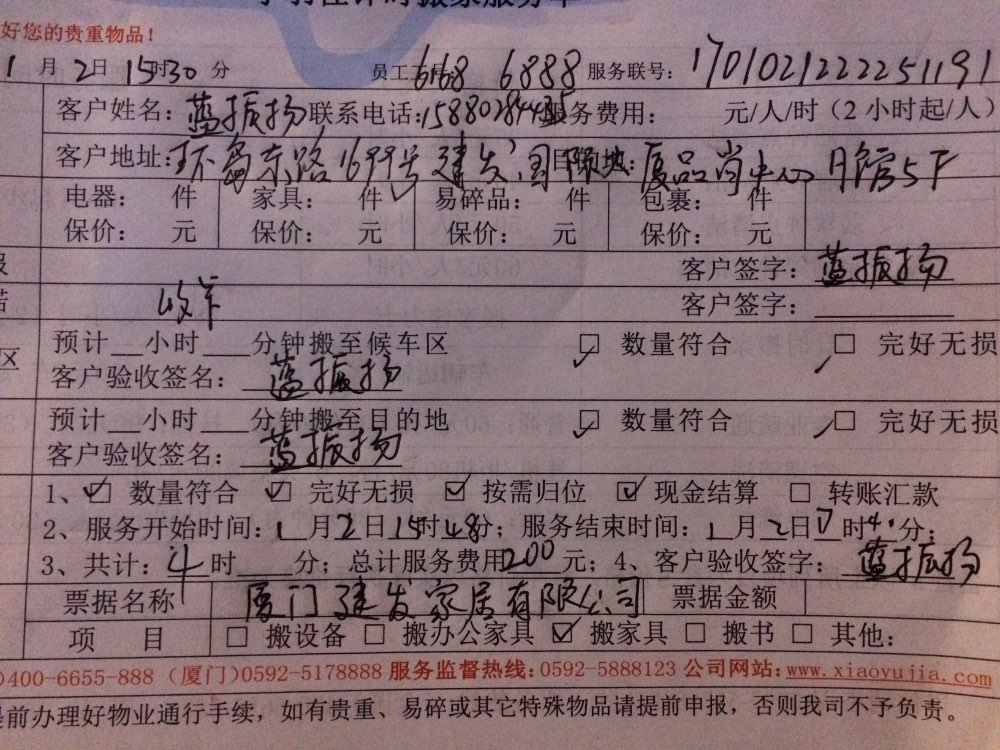 好您的贵重物品！
1月2日15时30分 员工工号：6168 6888 服务联号：1701021222251191
客户姓名：蓝振扬 联系电话：服务费用： 元/人/时（2小时起/人）
客户地址：环岛东路1699号建发国际 目的地：厦品尚中心 5F
电器： 件 家具： 件 易碎品： 件 包裹： 件
保价： 元 保价： 元 保价： 元 保价： 元
客户签字：蓝振扬
收卡 客户签字：
区 预计__小时___分钟搬至候车区 ☑ 数量符合 ☑ 完好无损
客户验收签名：蓝振扬
预计__小时___分钟搬至目的地 ☑ 数量符合 ☑ 完好无损
客户验收签名：蓝振扬
1、☑ 数量符合 ☑ 完好无损 ☑ 按需归位 ☑ 现金结算 □ 转账汇款
2、服务开始时间：1月2日15时48分；服务结束时间：1月2日17时40分；
3、共计：4时___分；总计服务费用200元；4、客户验收签字：蓝振扬
票据名称 厦门建发家居有限公司 票据金额
项 目 □ 搬设备 □ 搬办公家具 ☑ 搬家具 □ 搬书 □ 其他：
400-6655-888（厦门）0592-5178888 服务监督热线：0592-5888123 公司网站：www.xiaoyujia.com
提前办理好物业通行手续，如有贵重、易碎或其它特殊物品请提前申报，否则我司不予负责。